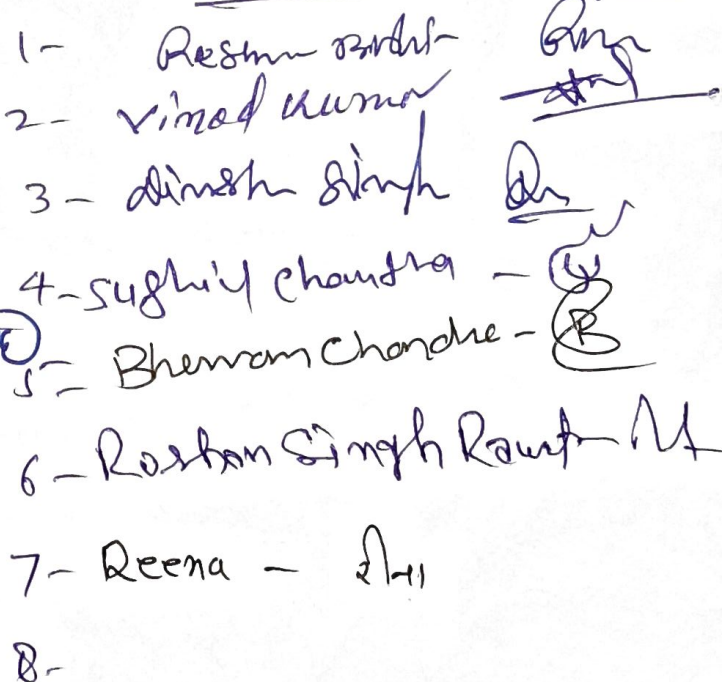 1-
2- Vimod Kumar
3- dinesh Singh
4- Sushil Chandra -
5- Bhewam Chandre - B
6- Roshan Singh Rawat
7- Reena - रीना
8-